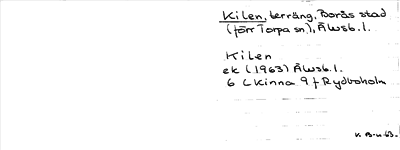 Kilen, terräng, Borås stad
(förr Torpa sn), Älvsb. l.
Kilen
ek (1963) Älvsb. l.
6 L Kinna 9 f Rydboholm